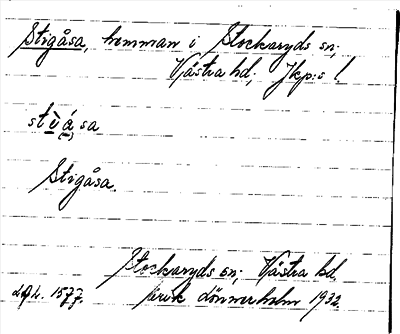 Stigåsa, hemman i Stockaryds sn;
Västra hd; Jkp:s l
stìǻsa
Stigåsa.
Stockaryds sn; Västra hd.
1577 dönnerholm 1932